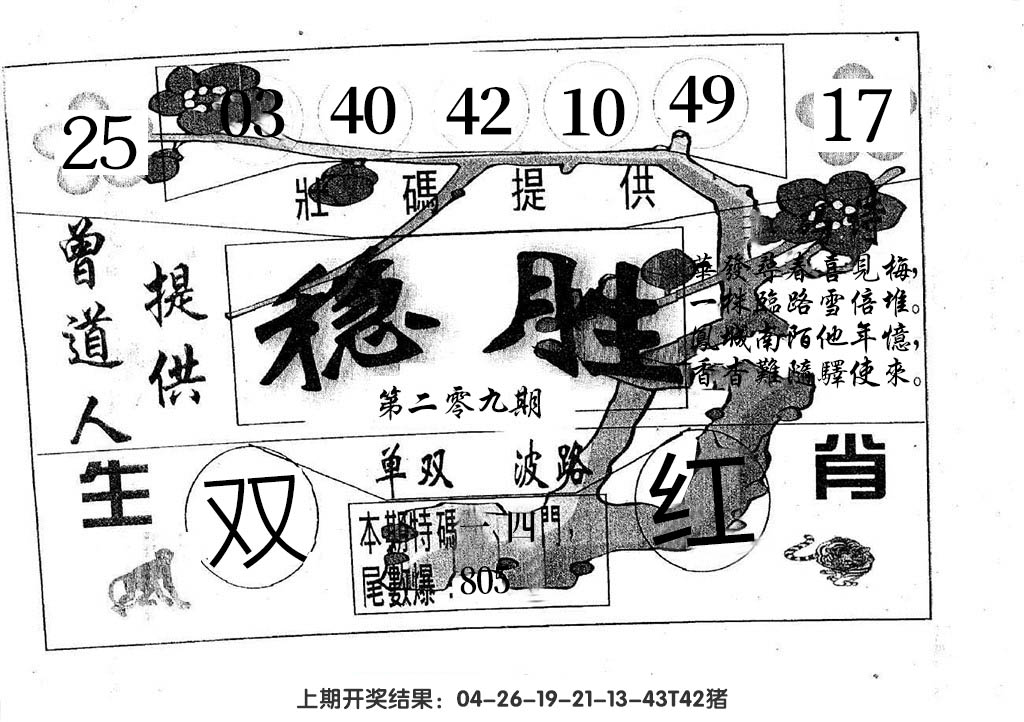 25 03 40 42 10 49 17
壯碼提供
特
曾道人
提供
稳胜
第二零九期
華發尋春喜見梅，
一株臨路雪倍堆。
鳳城南陌他年憶，
香杳難隨驛使來。
单双 波路
生 双 红 肖
本期特碼一、四門，
尾數爆：805
上期开奖结果：04-26-19-21-13-43T42猪